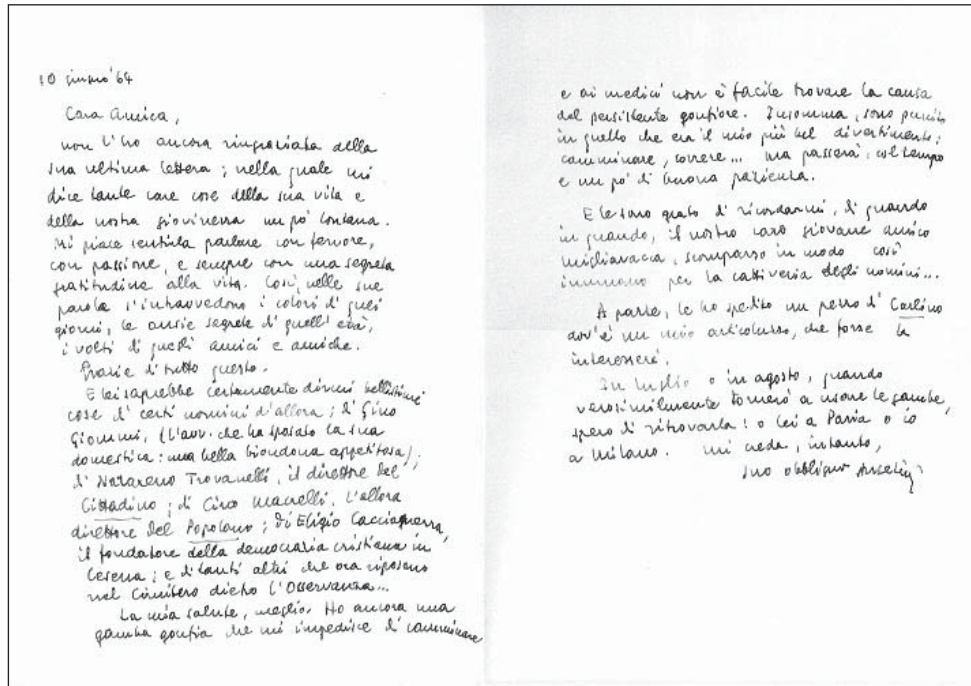 10 giugno '64
Cara Amica,
non l'ho ancora ringraziata della
sua ultima lettera; nella quale mi
dice tante care cose della sua vita e
della nostra giovinezza un pò lontana.
Mi piace sentirla parlare con fervore,
con passione, e sempre con una segreta
gratitudine alla vita. Così, nelle sue
parole s'intravvedono i colori di quei
giorni, le ansie segrete di quell'età,
i volti di quegli amici e amiche.
Grazie di tutto questo.
E lei saprebbe certamente dirmi bellissime
cose di certi uomini d'allora; di Gino
Giommi, (l'avv. che ha sposato la sua
domestica: una bella biondona appetitosa);
di Nazzareno Trovanelli, il direttore del
Cittadino; di Cino Macrelli, l'allora
direttore del Popolano; di Eligio Cacciaguerra,
il fondatore della democrazia cristiana in
Cesena; e di tanti altri che ora riposano
nel Cimitero dietro l'Osservanza...
La mia salute, meglio. Ho ancora una
gamba gonfia che mi impedisce di camminare
e ai medici non è facile trovare la causa
del persistente gonfiore. Insomma, sono punito
in quello che era il mio più bel divertimento:
camminare, correre... ma passerà: col tempo
e un pò di buona pazienza.
E le sono grato di ricordarmi, di quando
in quando, il nostro caro giovane amico
Migliavacca, scomparso in modo così
inumano per la cattiveria degli uomini...
A parte, le ho spedito un pezzo di Carlino
dov'è un mio articoluzzo, che forse la
interesserà.
In luglio o in agosto, quando
verosimilmente tornerò a usare le gambe,
spero di ritrovarla: o lei a Pavia o io
a Milano. Mi creda, intanto,
suo obbligato